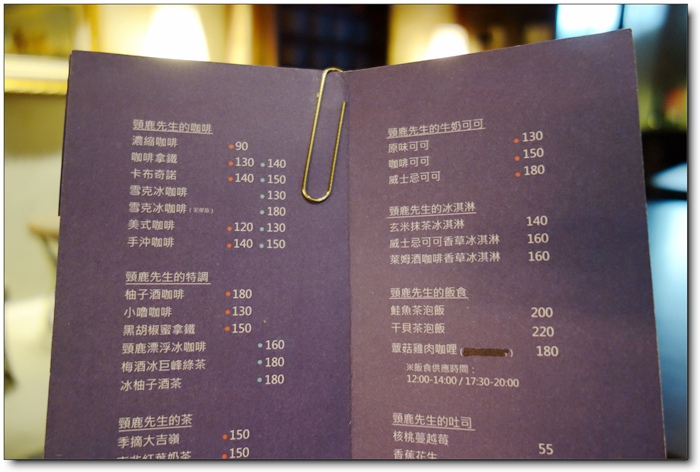 頸鹿先生的咖啡
濃縮咖啡 90
咖啡拿鐵 130 140
卡布奇諾 140 150
雪克冰咖啡 130
雪克冰咖啡 180
美式咖啡 120 130
手沖咖啡 140 150
頸鹿先生的特調
柚子酒咖啡 180
小嚕咖啡 130
黑胡椒蜜拿鐵 150
頸鹿漂浮冰咖啡 160
梅酒冰巨峰綠茶 180
冰柚子酒茶 180
頸鹿先生的茶
季摘大吉嶺 150
紅葉奶茶 150
頸鹿先生的牛奶可可
原味可可 130
咖啡可可 150
威士忌可可 180
頸鹿先生的冰淇淋
玄米抹茶冰淇淋 140
威士忌可可香草冰淇淋 160
萊姆酒咖啡香草冰淇淋 160
頸鹿先生的飯食
鮭魚茶泡飯 200
干貝茶泡飯 220
蕈菇雞肉咖哩 180
※飯食供應時間：
12:00-14:00 / 17:30-20:00
頸鹿先生的吐司
核桃蔓越莓
香蕉花生 55